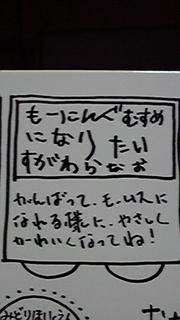 もーにんぐむすめ
になりたい
すがわらなお
がんばって、モームスに
なれる様に、やさしく
かわいくなってね!
みどりほいくえん